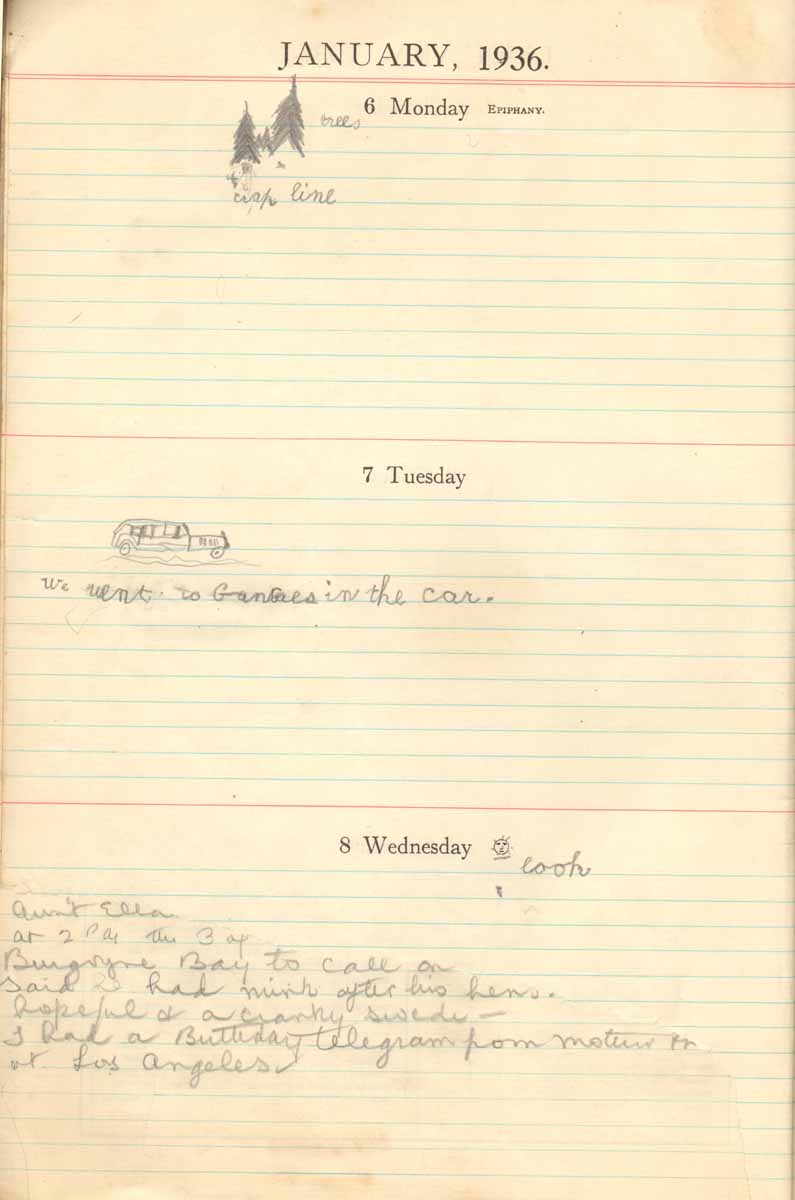 JANUARY, 1936.
6 Monday EPIPHANY.
trees
trap line
7 Tuesday
We went to Ganges in the car.
8 Wednesday
look
Aunt Ella
at 2 the
Burgoyne Bay to call on
said had mink after his hens.
hopeful & a cranky swede —
I had a Birthday telegram from mother
at Los Angeles